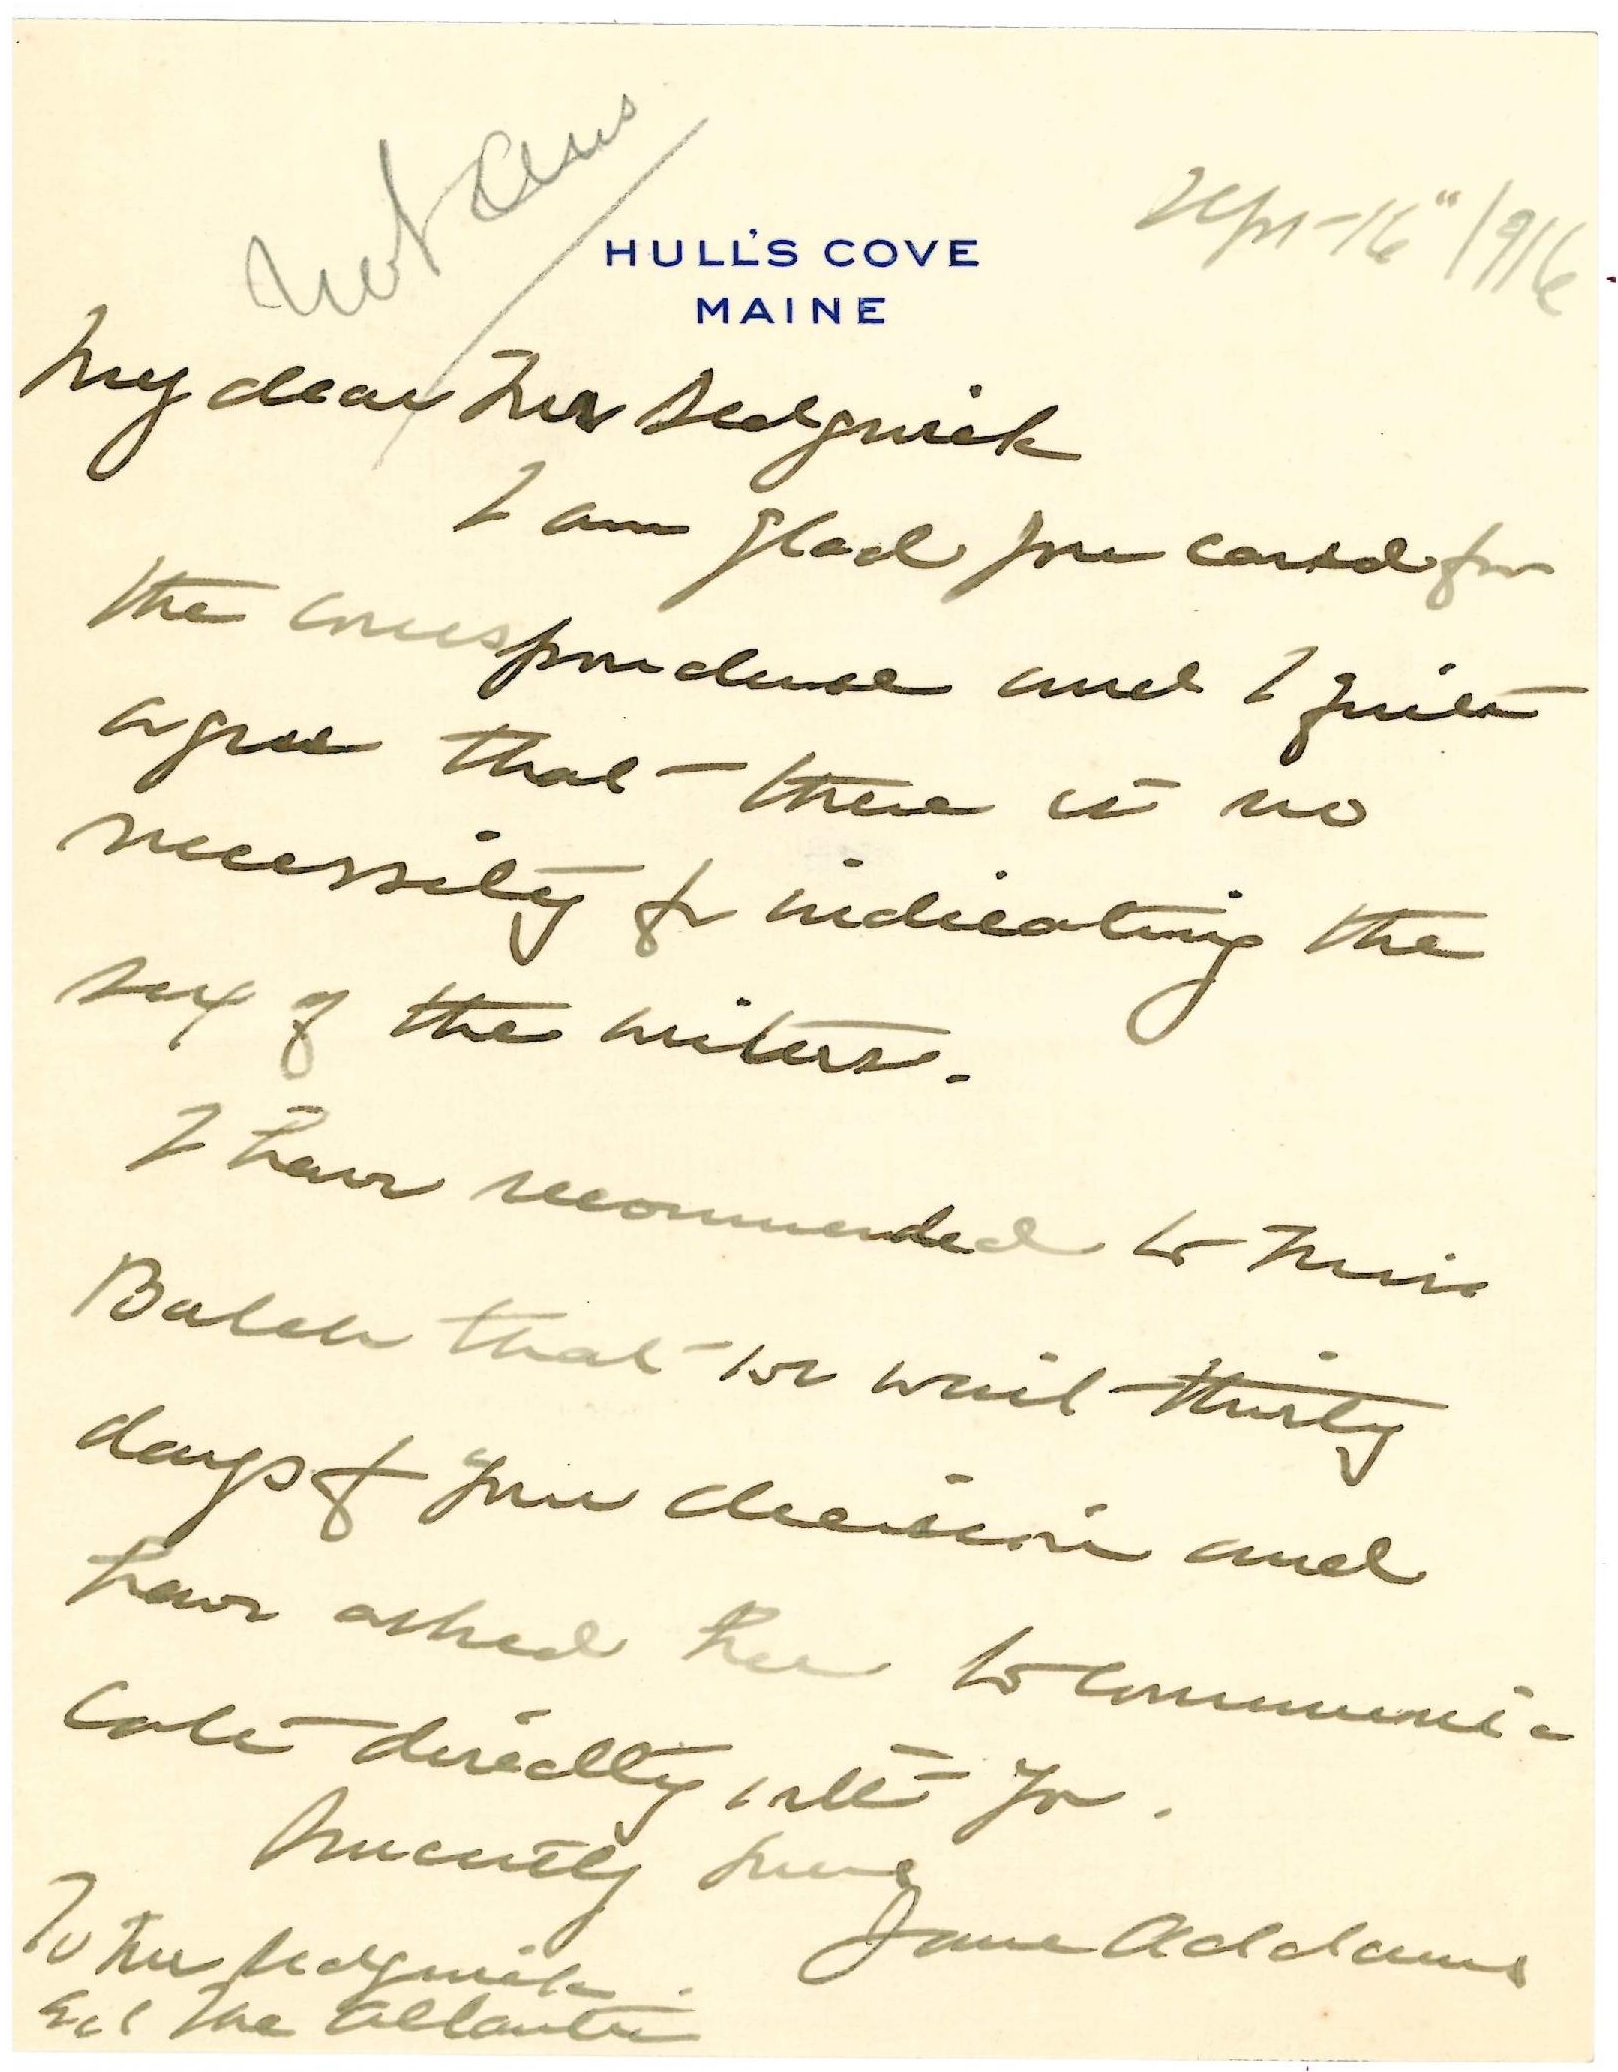 Not Ans
Sept - 16" 1916
HULL'S COVE
MAINE
My dear Mr Sedgwick
I am glad you cared for
the correspondence and I quite
agree that there is no
necessity for indicating the
sex of the writers.
I have recommended to Miss
Balch that we wait thirty
days for your decision and
have asked her to communi-
cate directly with you.
Sincerely yours
Jane Addams
To Mr Sedgwick.
Ed The Atlantic